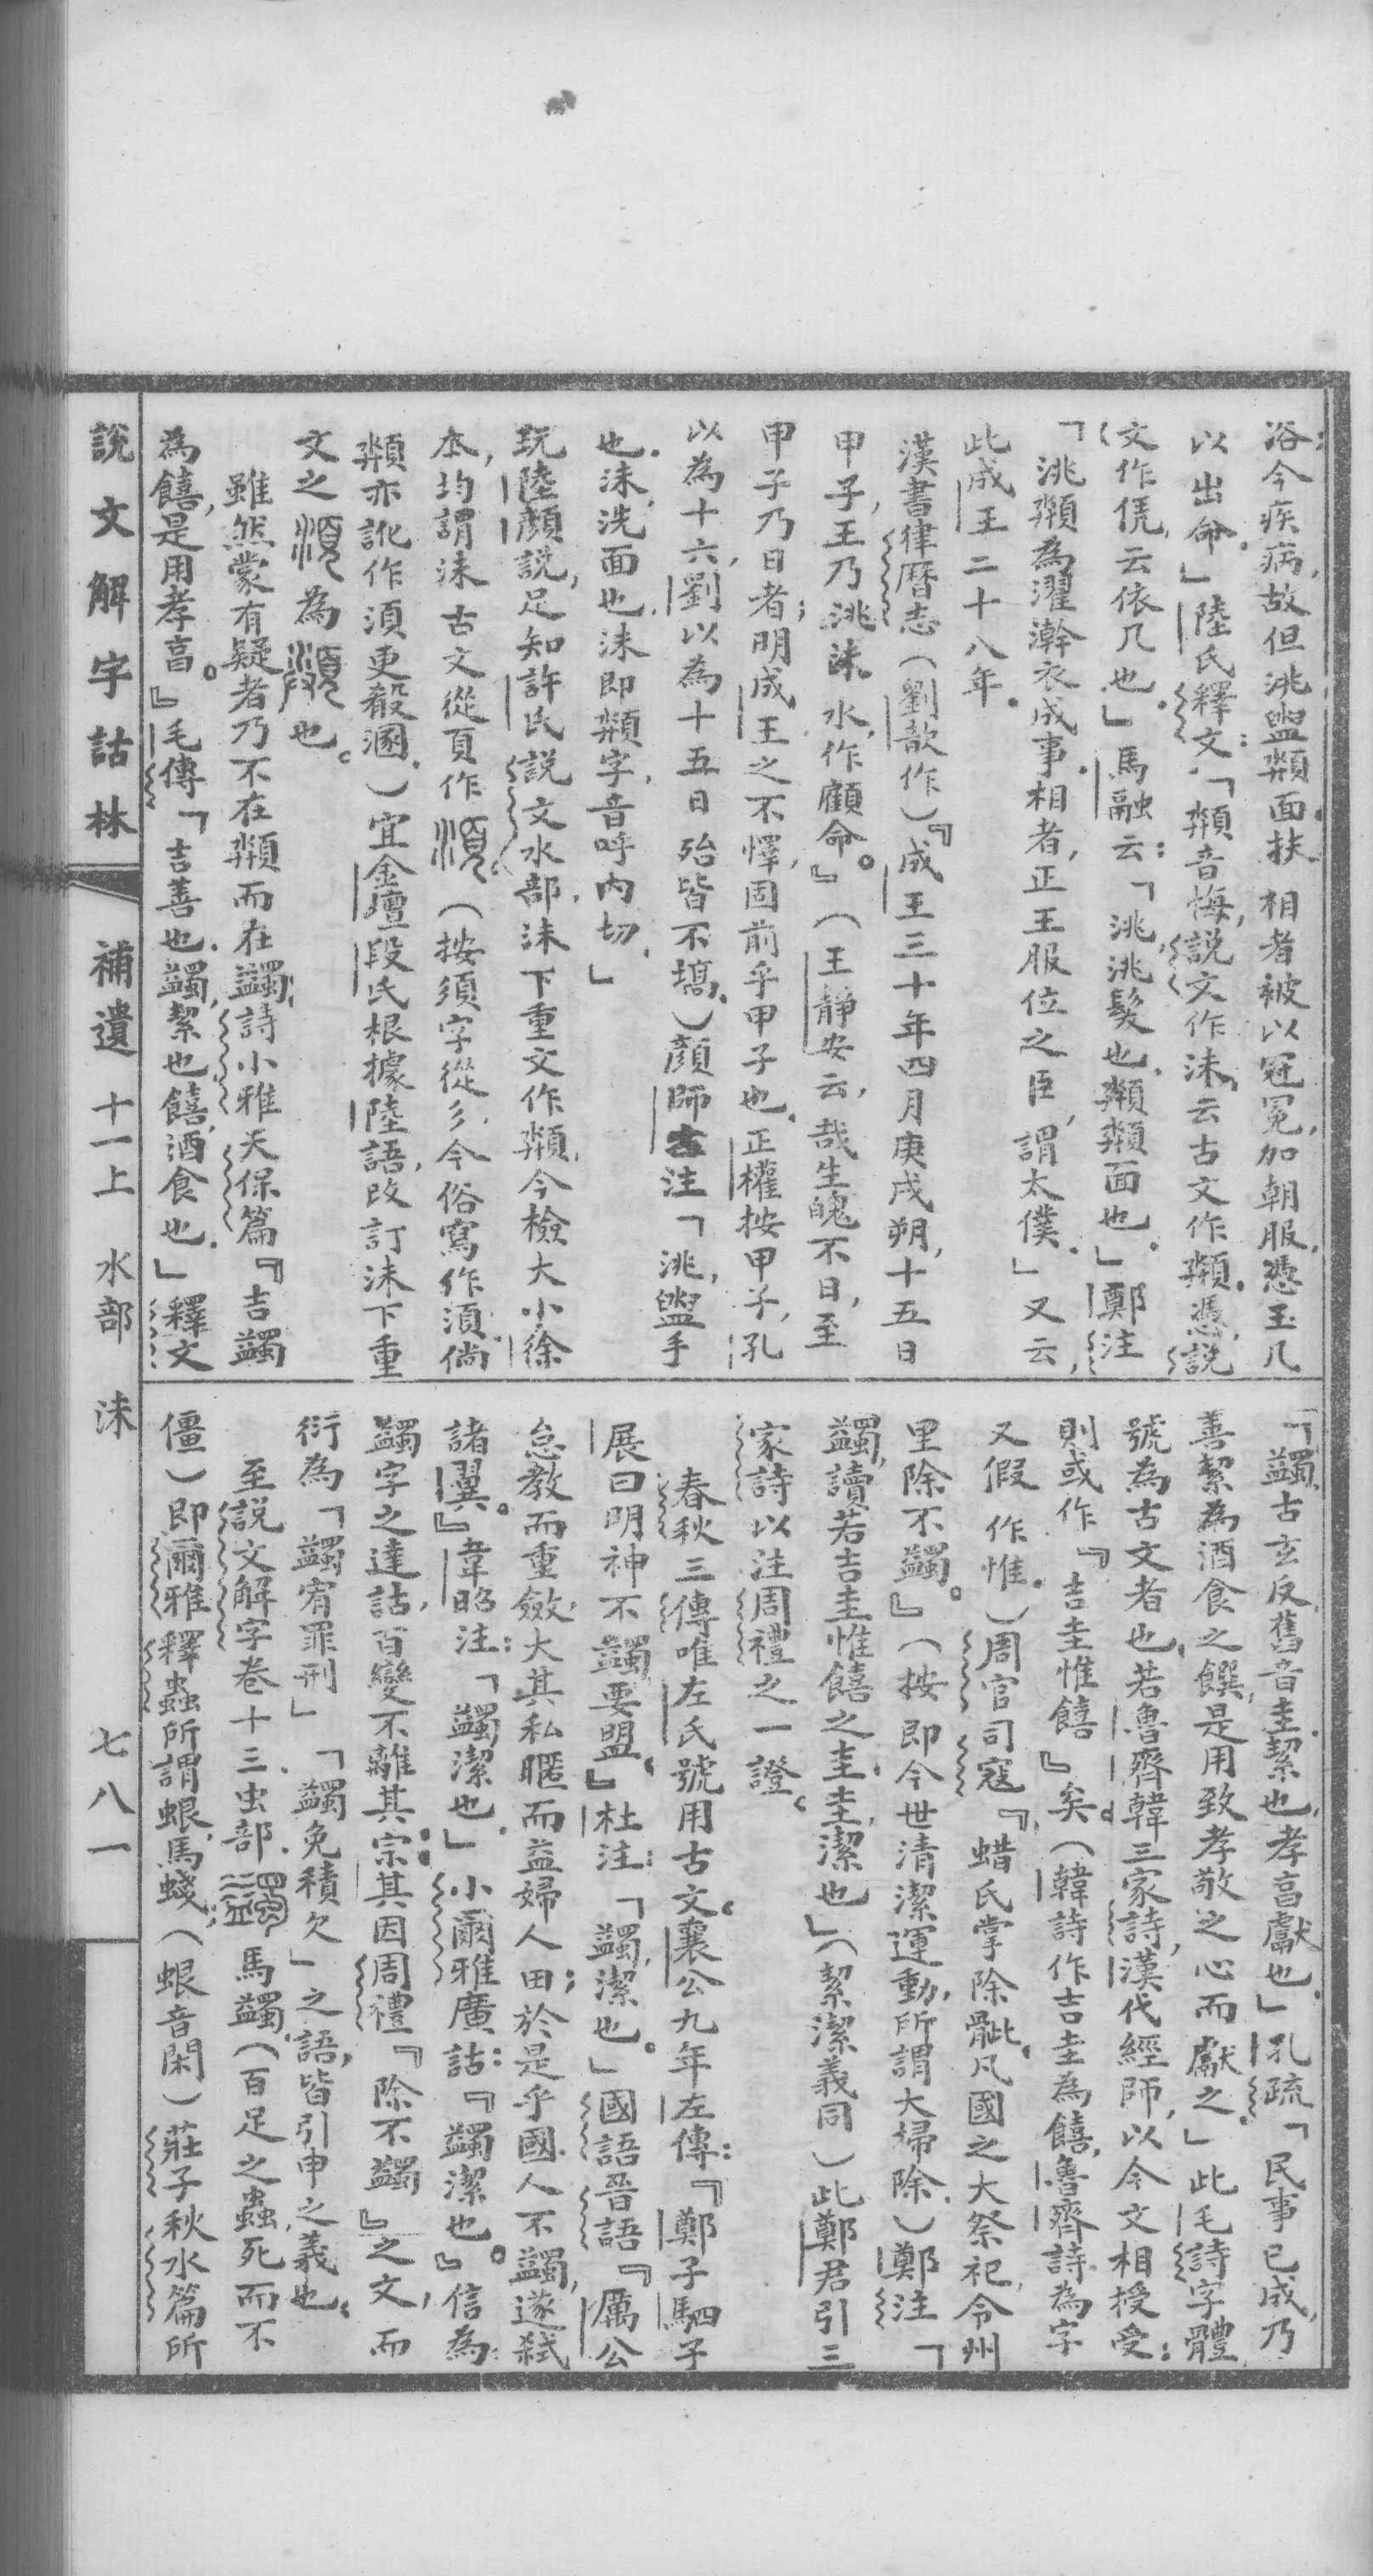 浴：今疾病，故但洮盥頮面。扶相者被以冠冕，加朝服，憑玉几
以出命。」陸氏釋文：「頮音悔，說文作沬，云古文作頮。憑，說
文作凭，云依几也。」馬融云：「洮，洮髮也。頮，頮面也。」鄭注
「洮頮為濯澣衣成事。相者，正王服位之臣，謂太僕。」又云，
此成王二十八年。
漢書律曆志（劉歆作）『成王三十年四月庚戌朔，十五日
甲子，王乃洮沬水，作顧命。』（王靜安云，哉生魄不日，至
甲子乃日者；明成王之不懌，固前乎甲子也。正權按甲子，孔
以為十六，劉以為十五日殆皆不塙。）顏師古注「洮，盥手
也。沬，洗面也。沬即頮字，音呼內切。」
玩陸顏說，足知許氏說文水部，沬下重文作頮，今檢大小徐
本，均謂沬古文從頁作湏，（按須字從彡，今俗寫作湏，倘
頮亦訛作湏更殽溷。）宜金壇段氏根據陸語，改訂沬下重
文之湏為頮也。
雖然蒙有疑者乃不在頮而在蠲，詩小雅天保篇『吉蠲
為饎，是用孝亯。』毛傳「吉善也。蠲，絜也饎，酒食也。」釋文
「蠲，古玄反，舊音圭，絜也，孝亯獻也。」孔疏「民事已成，乃
善絜為酒食之饌，是用致孝敬之心而獻之。」此毛詩字體，
號為古文者也，若魯齊韓三家詩，漢代經師，以今文相授受：
則或作『吉圭惟饎』矣。（韓詩作吉圭為饎，魯齊詩為字
又假作惟。）周官司寇『蜡氏掌除骴，凡國之大祭祀，令州
里除不蠲。』（按即今世清潔運動，所謂大掃除。）鄭注「
蠲，讀若吉圭惟饎之圭，圭，潔也」（絜潔義同）此鄭君引三
家詩以注周禮之一證。
春秋三傳唯左氏號用古文，襄公九年左傳：『鄭子駟子
展曰明神不蠲要盟。』杜注：「蠲，潔也。」國語晉語『厲公
怠教而重斂，大其私暱而益婦人田；於是乎國人不蠲，遂弒
諸翼。』韋昭注：「蠲潔也。」小爾雅廣詁：『蠲潔也。』信為：
蠲字之達詁，百變不離其宗：其因周禮『除不蠲』之文，而
衍為「蠲宥罪刑」「蠲免積欠」之語，皆引申之義也。
至說文解字卷十三虫部，蠲馬蠲，（百足之蟲，死而不
僵）即爾雅釋蟲所謂蛝，馬蝬，（蛝音閑）莊子秋水篇所
說文解字詁林　補遺　十一上　水部　沬　七八一